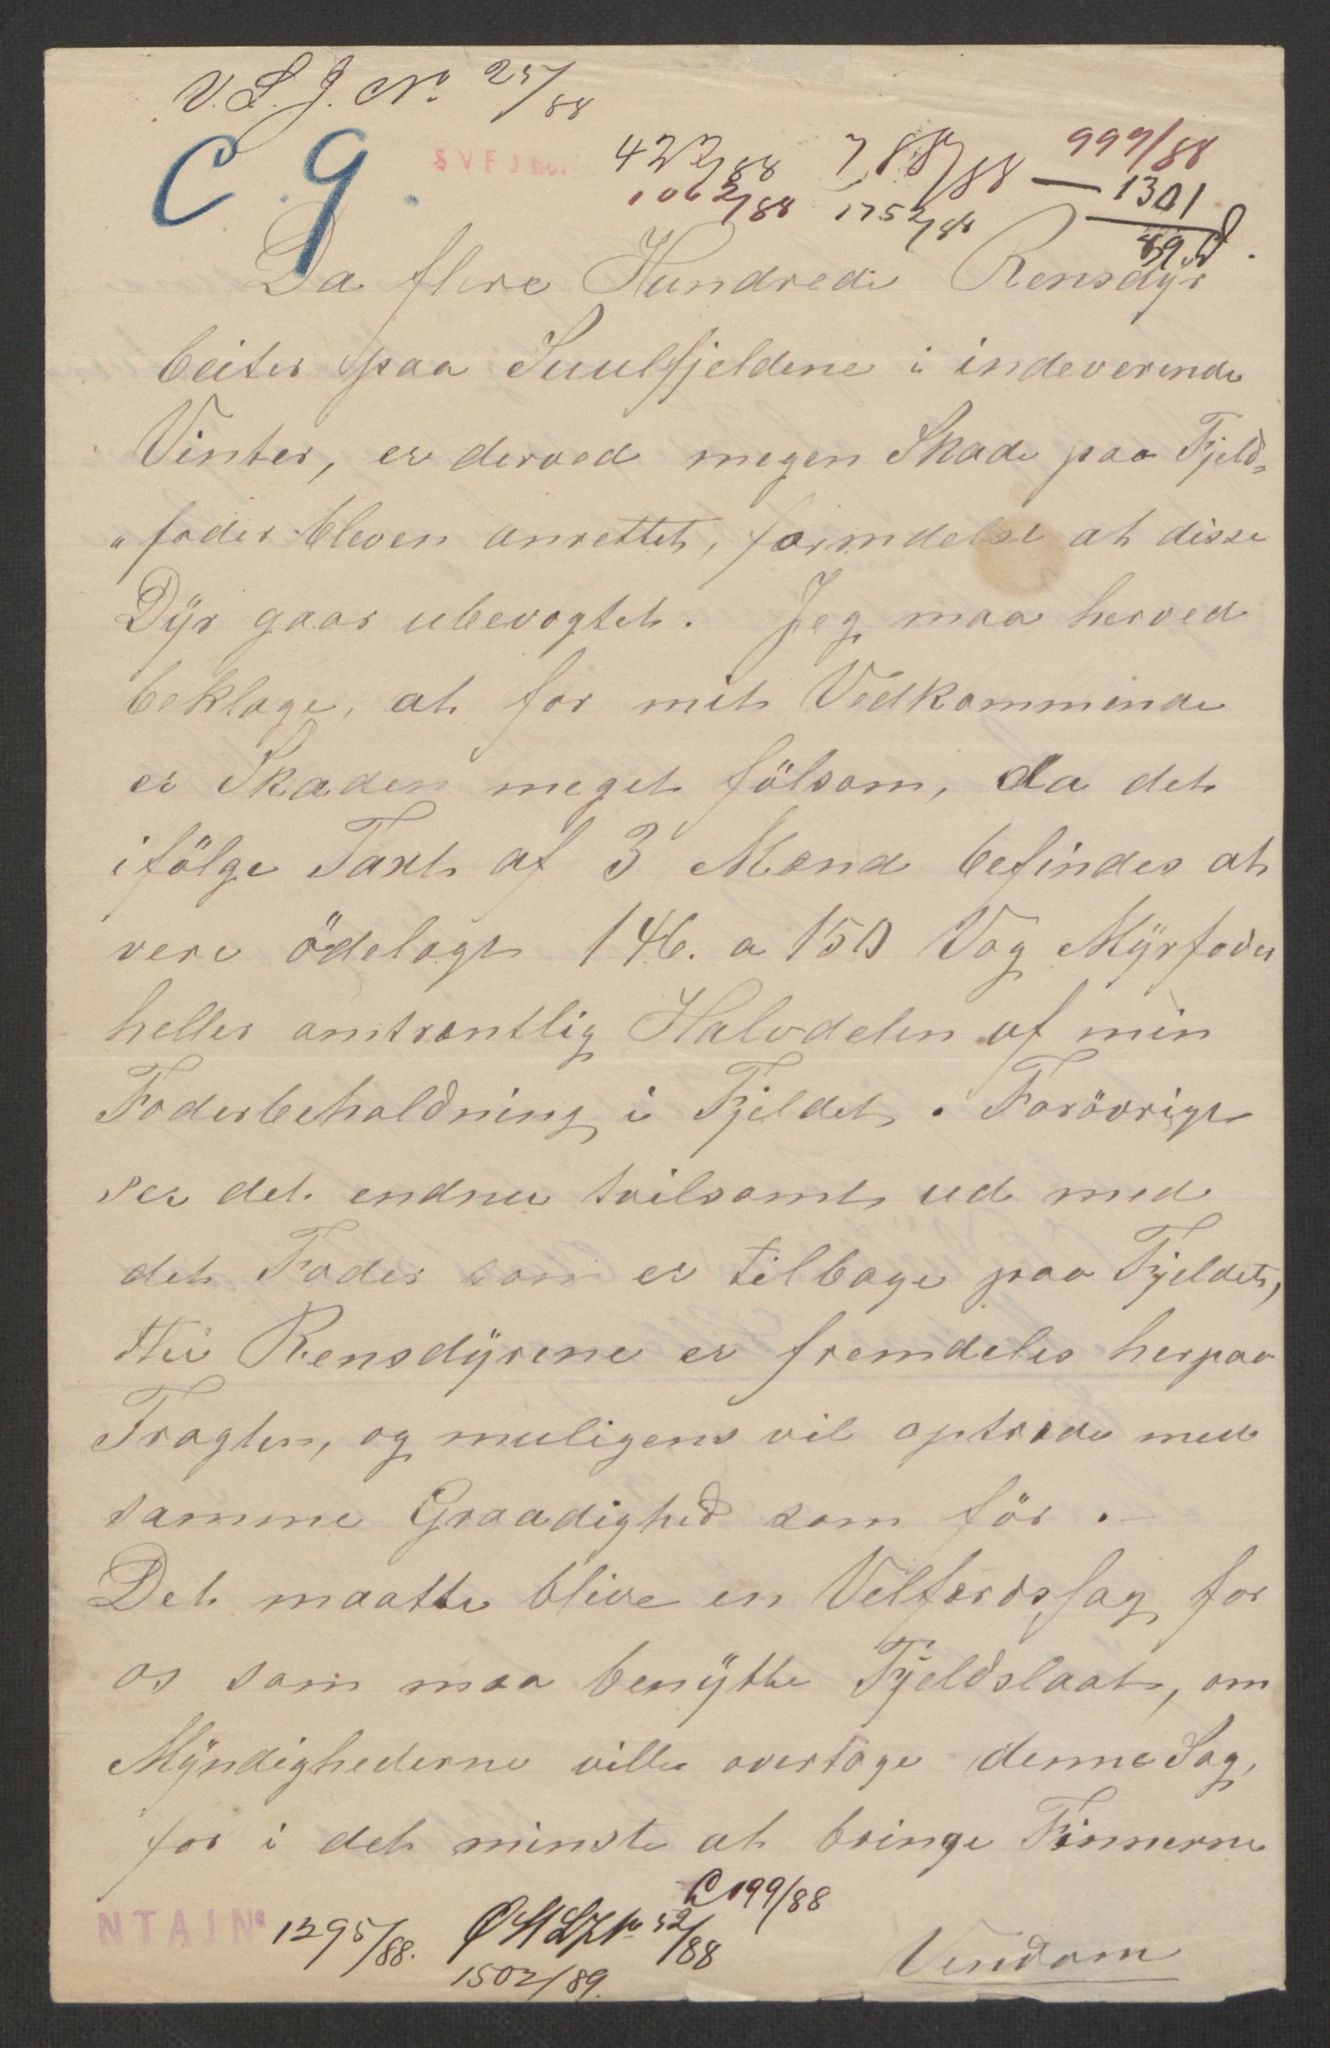 V. L. J. No. 25/88
C. 9.
S V F J No.
422/88 788/88 — 999/88
1062/88 1752/88 1301
89
Da flere Hundrede Rensdÿr
beiter paa Suulfjeldene i indeverende
Vinter, er derved megen Skade paa Fjeld-
"foder bleven anrettet, formdelst at disse
Dÿr gaar ubevogtet. Jeg maa herved
beklage, at for mit Vedkommende
er Skaden meget fölsom, da det
ifölge Taxt af 3 Mænd befindes at
vere ödelagt 146. a 150 Vog Mÿrfoder
heller omtrentlig Halvdelen af min
Foderbeholdning i Fjeldet. Forövrigt
ser det endnu tvilsomt ud med
det Foder som er tilbage paa Fjeldet,
thi Rensdÿrene er fremdeles herpaa
Tragten, og muligens vil optrede med
samme Graadighed som för.
Det maatte blive en Velferdssag for
os som maa benÿtte Fjeldslaat, om
Mÿndighederne ville overtage denne Sag,
for i det minste at bringe Finnerne
C 199/88
N T A J No 1295/88. ØHLJ No 52/88
1502/89.
Vendom